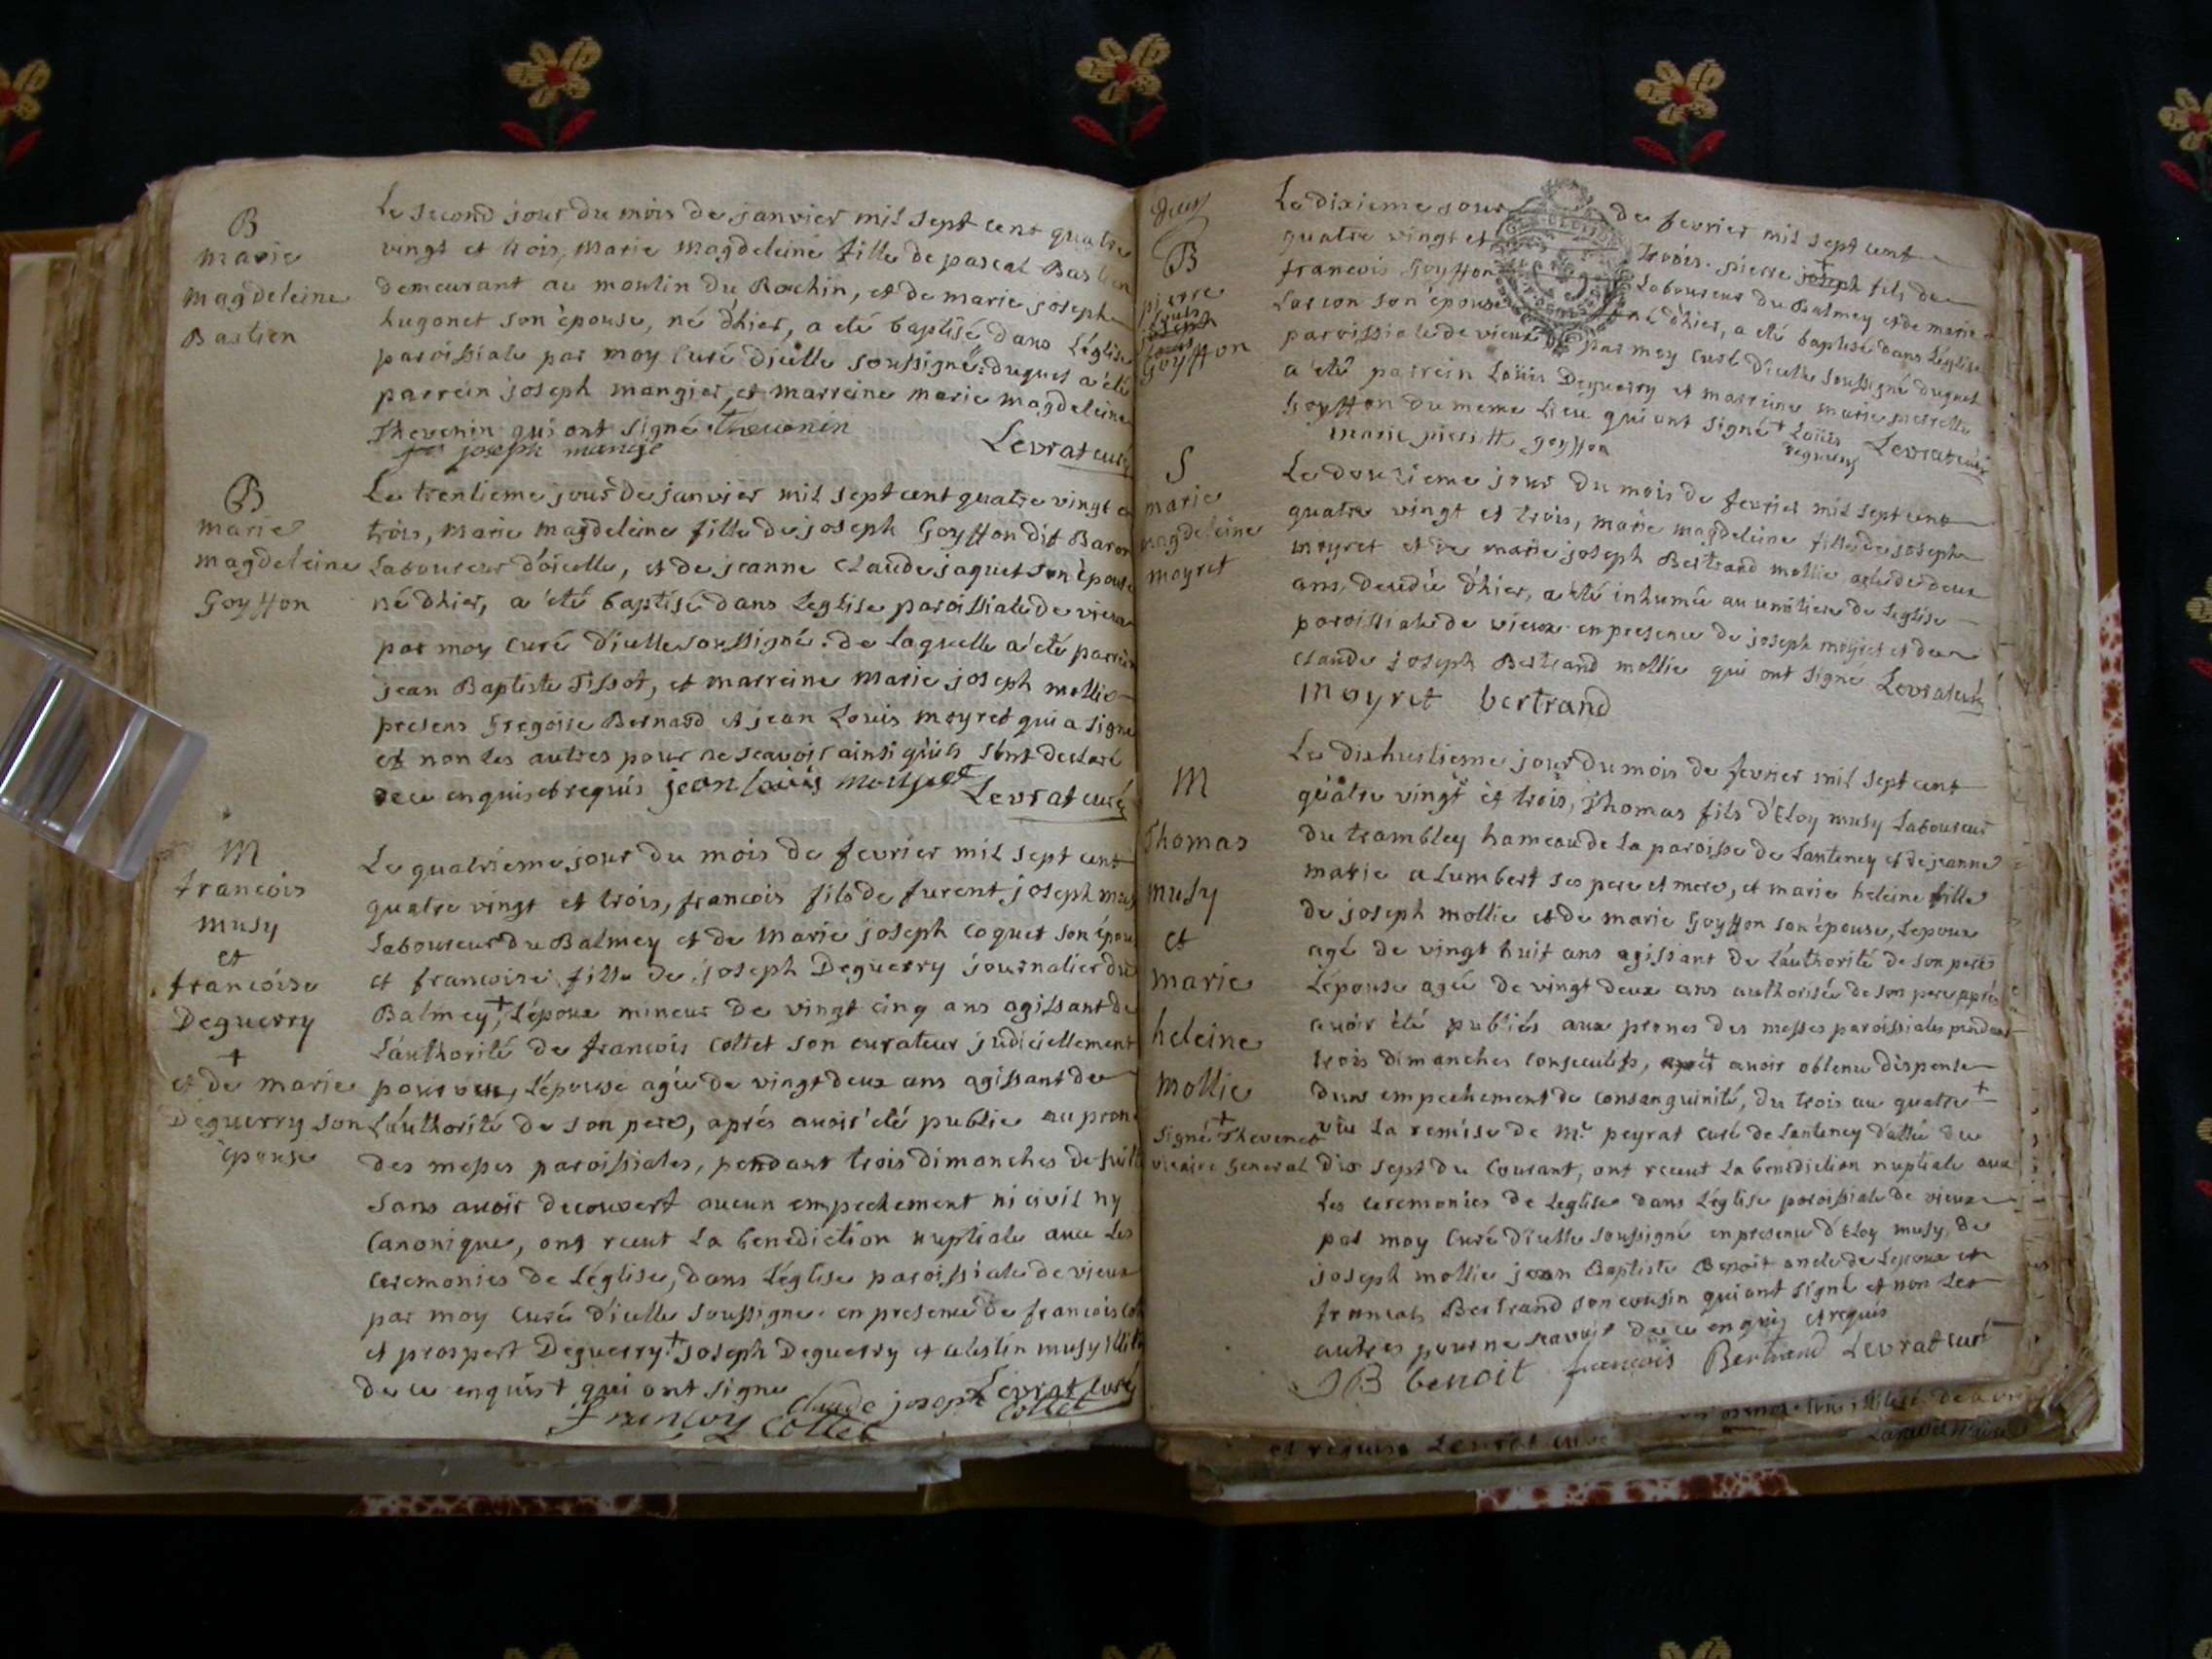 B
marie
magdeleine
Bastien
Le second jour du mois de janvier mil sept cent quatre
vingt et trois, marie magdeleine fille de pascal Bastien
demeurant au moulin du Rochin, et de marie joseph
hugonet son épouse, né d'hier, a eté baptisé dans L'église
paroissiale par moy Curé d'icelle soussigné: duquel a été
parrein joseph mangier, et marreine marie magdeleine
Thevenin qui ont signé thevenin
joseph mangé Levrat curé
B
marie
magdeleine
Goyffon
Le trentieme jour de janvier mil sept cent quatre vingt et
trois, marie magdeleine fille de joseph Goyffon dit Baron
Laboureur d'oicelle, et de jeanne Claude jaquet son épouse
né d'hier, a été baptisé dans Leglise paroissiale de vieux
par moy curé d'icelle soussigné. de laquelle a été parrein
jean Baptiste Tissot, et marreine marie joseph mollie
presens Gregoire Bernard et jean Louis moyret qui a signé
et non les autres pour ne scavoir ainsi qu'ils l'ont declaré
de ce enquis et requis jean louis moiret Levrat curé
M
francois
musy
et
francoise
Deguerry
+
et de marie
Deguerry son
épouse
Le quatrieme jour du mois de fevrier mil sept cent
quatre vingt et trois, francois fils de furent joseph musy
Laboureur du Balmey et de marie joseph coquet son épouse
et francoise fille de joseph Deguerry journalier du
Balmey+, L'époux mineur de vingt cinq ans agissant de
L'authorité de francois Collet son curateur judiciellement
pourveu, L'épouse agée de vingt deux ans agissant de
L'authorité de son pere, aprés avoir été publie au prone
des messes paroissiales, pendant trois dimanches de suitte
sans avoir decouvert aucun empechement ni civil ny
canonique, ont recut la benediction nuptiale avec les
ceremonies de L'église, dans L'église paroissiale de vieux
par moy curé d'icelle soussigné. en presence de francois Collet
et prospert Deguerry + joseph Deguerry et celestin musy
de ce enquist qui ont signe Levrat curé
claude joseph Collet
francoy Collet
B
pierre
Goyffon
Le dixieme jour de fevrier mil sept cent
quatre vingt et trois. pierre joseph fils de
francois Goyffon Laboureur du Balmey et de marie
Lascon son épouse né d'hier, a eté baptisé dans L'église
paroissiale de vieux par moy curé d'icelle soussigné duquel
a été parrein Loüis Deguerry et marreine marie pierrette
Goyffon du meme lieu qui ont signé + Loüis Levrat curé
marie pierrette goyffon
S
marie
magdeleine
moyret
Le douzieme jour du mois de fevrier mil sept cent
quatre vingt et trois, marie magdeleine fille de joseph
moyret et de marie joseph Bertrand mollie agée de deux
ans, decedée d'hier, a été inhumée au cimitiere de Leglise
paroissiale de vieux en presence de joseph moyret et de
claude joseph Bertrand mollie qui ont signé Levrat curé
moyret bertrand
M
Thomas
musy
et
marie
heleine
mollie
+
signé Thevenet
vicaire General
Le dixhuitieme jour du mois de fevrier mil sept cent
quatre vingt et trois, Thomas fils d'Eloy musy Laboureur
du trambley hameau de la paroisse de Lanteney et de jeanne
marie alumbert ses pere et mere, et marie heleine fille
de joseph mollie et de marie Goyffon son épouse, Lepoux
agé de vingt huit ans agissant de L'authorité de son pere
L'épouse agée de vingt deux ans authorisée de son pere aprés
avoir été publiés aux prones des messes paroissiales pendant
trois dimanches consecutifs, avoir obtenu dispense
dans empechement de consanguinité, du trois au quatre+
viu la remise de Mr peyrat curé de Lanteney dattée du
dix sept du courant, ont recut la benediction nuptiale avec
les ceremonies de Leglise dans L'église paroissiale de vieux
par moy curé d'icelle soussigné en presence d'Eloy musy, de
joseph mollie jean Baptiste Benoit oncle de Lepoux et
francois Bertrand son cousin qui ont signé et non les
autres pour ne scavoir de ce enquis et requis
JB benoit francois Bertrand Levrat curé
et requis Levrat curé